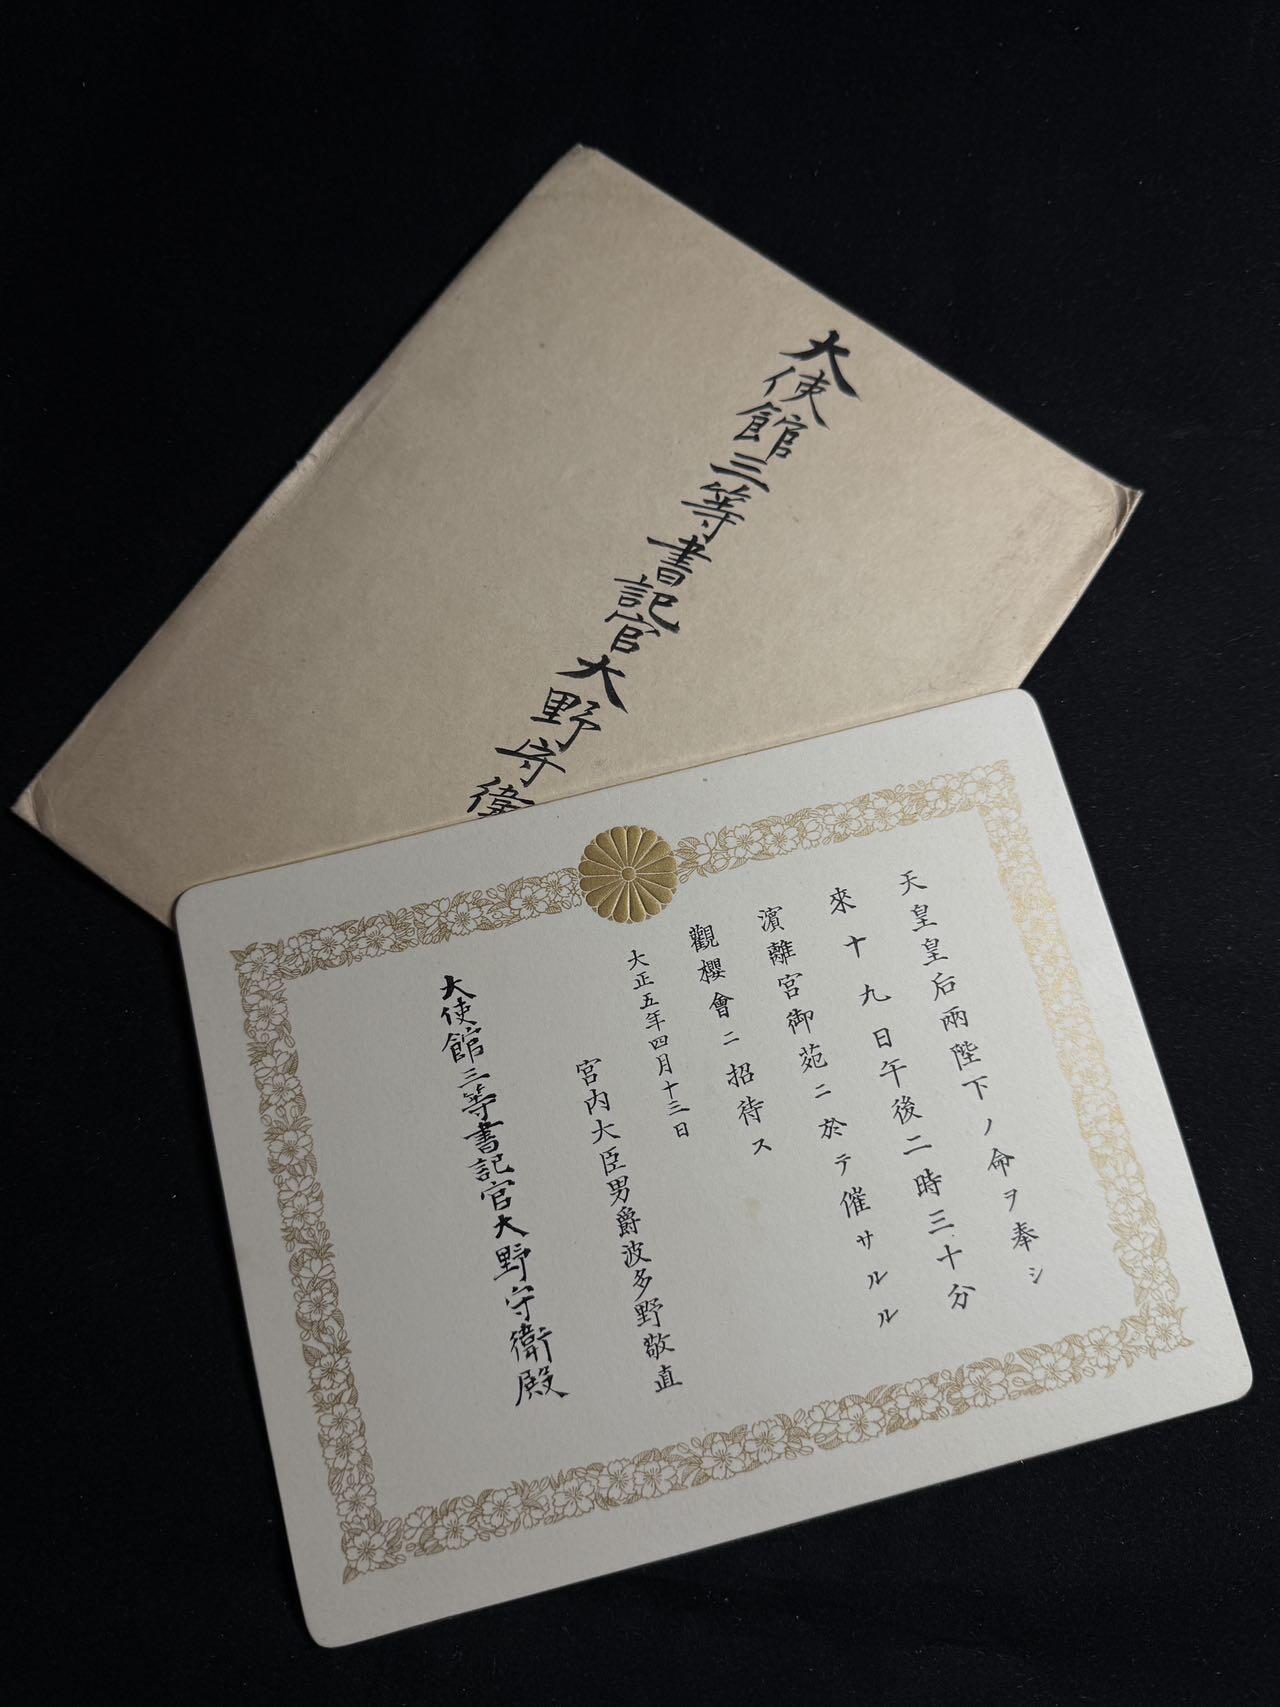 大使館三等書記官大野守衛
天皇皇后兩陛下ノ命ヲ奉シ
來十九日午後二時三十分
濱離宮御苑ニ於テ催サルル
觀櫻會ニ招待ス
大正五年四月十三日
宮内大臣男爵波多野敬直
大使館三等書記官大野守衛殿